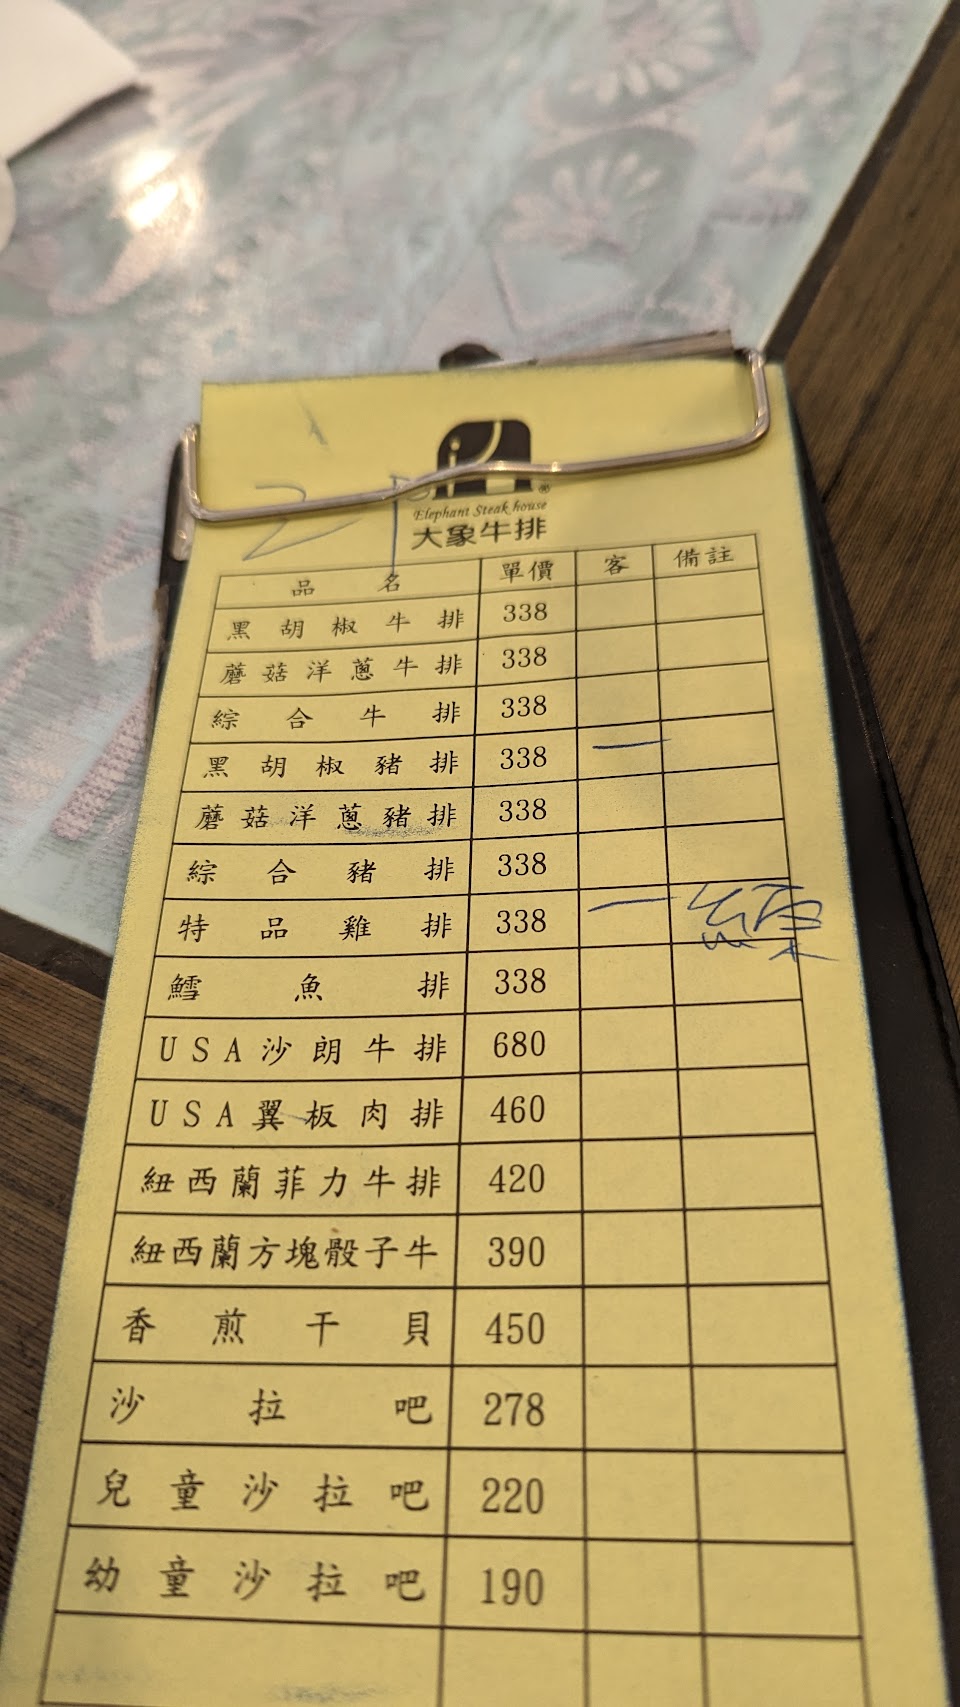 21
Elephant Steak house®
大象牛排
品名 單價 客 備註
黑胡椒牛排 338
蘑菇洋蔥牛排 338
綜合牛排 338
黑胡椒豬排 338 一
蘑菇洋蔥豬排 338
綜合豬排 338
特品雞排 338 一
鱈魚排 338
USA沙朗牛排 680
USA翼板肉排 460
紐西蘭菲力牛排 420
紐西蘭方塊骰子牛 390
香煎干貝 450
沙拉吧 278
兒童沙拉吧 220
幼童沙拉吧 190